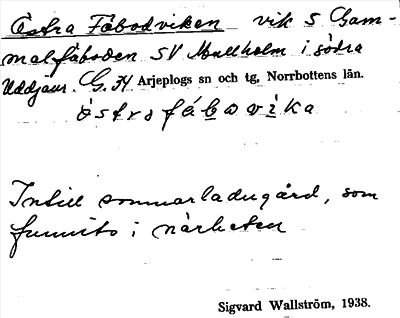 Östra Fäbodviken vik S Gam-
malfäboden SV Mullholm i södra
Uddjaur. G. 34 Arjeplogs sn och tg, Norrbottens län.
Intill sommarladugård, som
funnits i närheten
Sigvard Wallström, 1938.